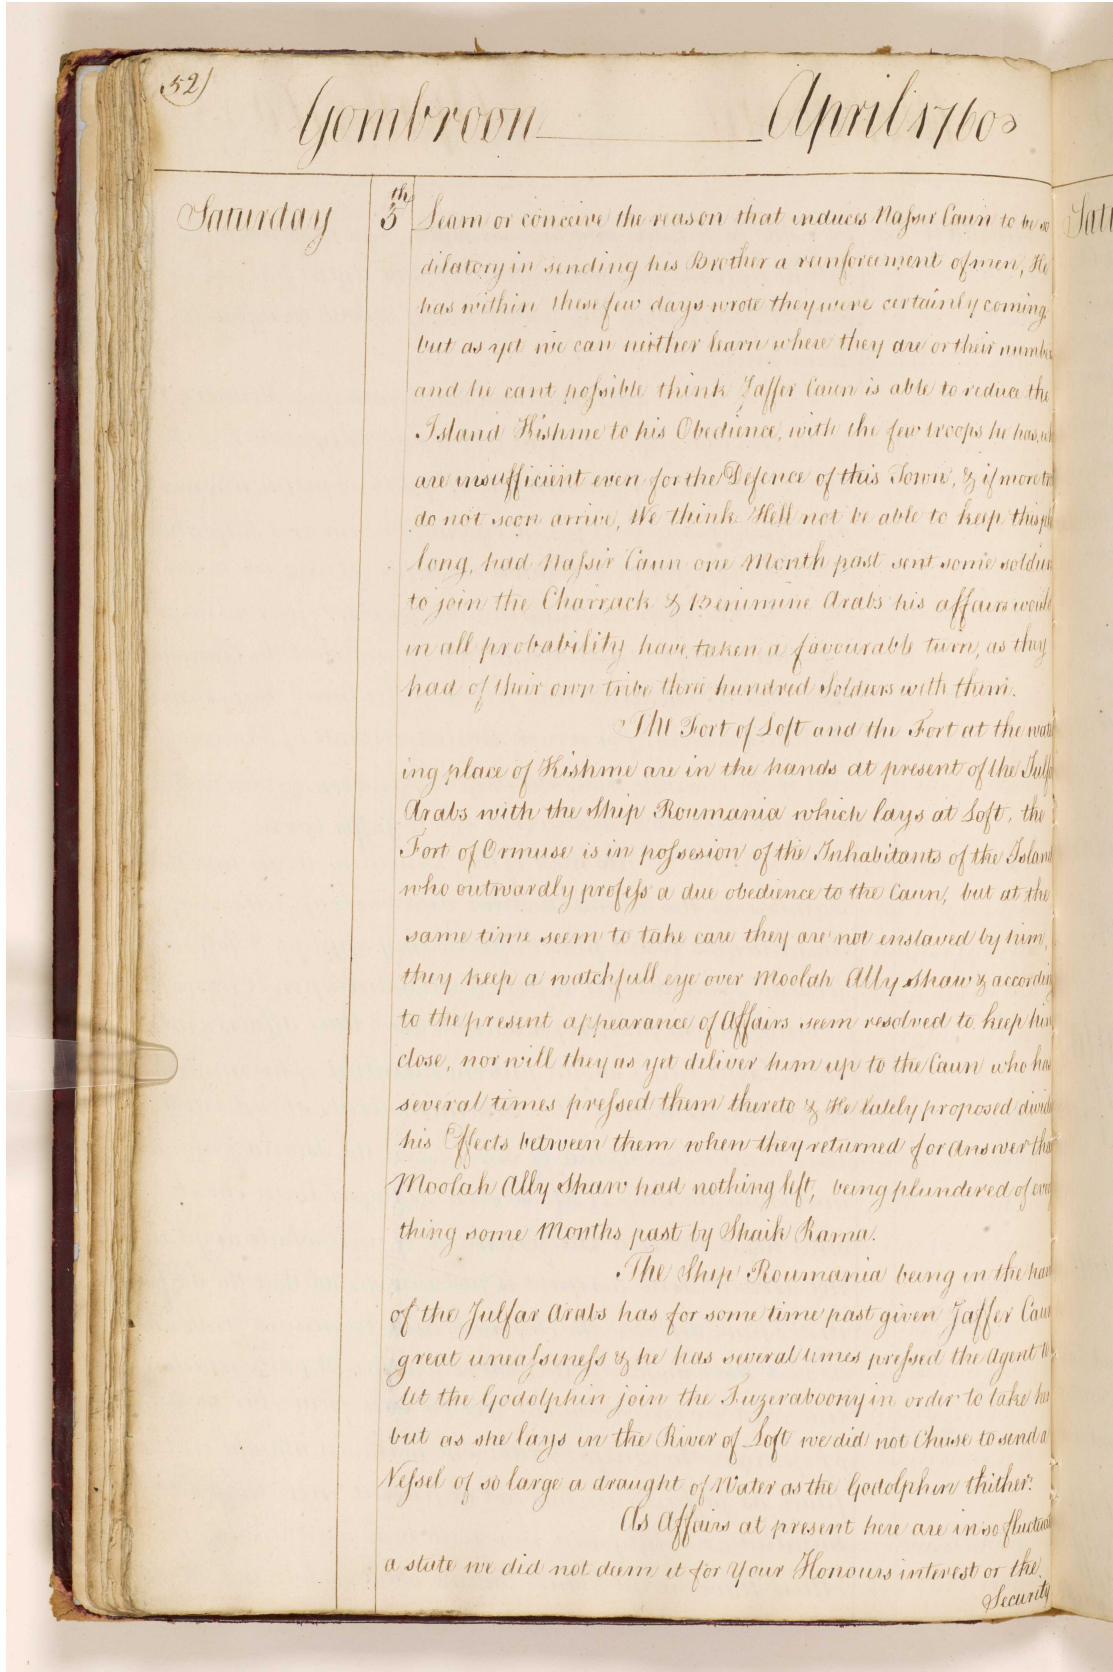 52)
Gombroon April 1760
Saturday 5th Learn or conceive the reason that induces Nassir Caun to be so
dilatory in sending his Brother a reinforcement of men, He
has within these few days wrote they were certainly coming
but as yet we can neither learn where they are or their number
and he cant possible think Jaffer Caun is able to reduce the
Island Kishme to his Obedience, with the few troops he has, wh
are insufficient even for the Defence of this Town, & if more tro
do not soon arrive, We think Hell not be able to keep this pla
long, had Nassir Caun one Month past sent some soldier
to join the Charrack & Benimine Arabs his affairs would
in all probability have taken a favourable turn, as they
had of their own tribe three hundred Soldiers with them.
The Fort of Loft and the Fort at the wate
ing place of Kishme are in the hands at present of the Julfa
Arabs with the Ship Roumania which lays at Loft, the
Fort of Ormuse is in possesion of the Inhabitants of the Island
who outwardly profess a due obedience to the Caun, but at the
same time seem to take care they are not enslaved by him,
they keep a watchfull eye over Moolah Ally Shaw & according
to the present appearance of Affairs seem resolved to keep him
close, nor will they as yet deliver him up to the Caun who has
several times pressed them thereto & He lately proposed divide
his Effects between them when they returned for answer tha
Moolah Ally Shaw had nothing left, being plundered of eve
thing some Months past by Shaik Rama.
The Ship Roumania being in the han
of the Julfar Arabs has for some time past given Jaffer Caun
great uneassiness & he has several times pressed the Agent to
let the Godolphin join the Fuzeraboony in order to take her
but as she lays in the River of Loft we did not Chuse to send a
Vessel of so large a draught of Water as the Godolphin thither.
As Affairs at present here are in so fluctuat
a state we did not deem it for Your Honours interest or the
Security
Satu